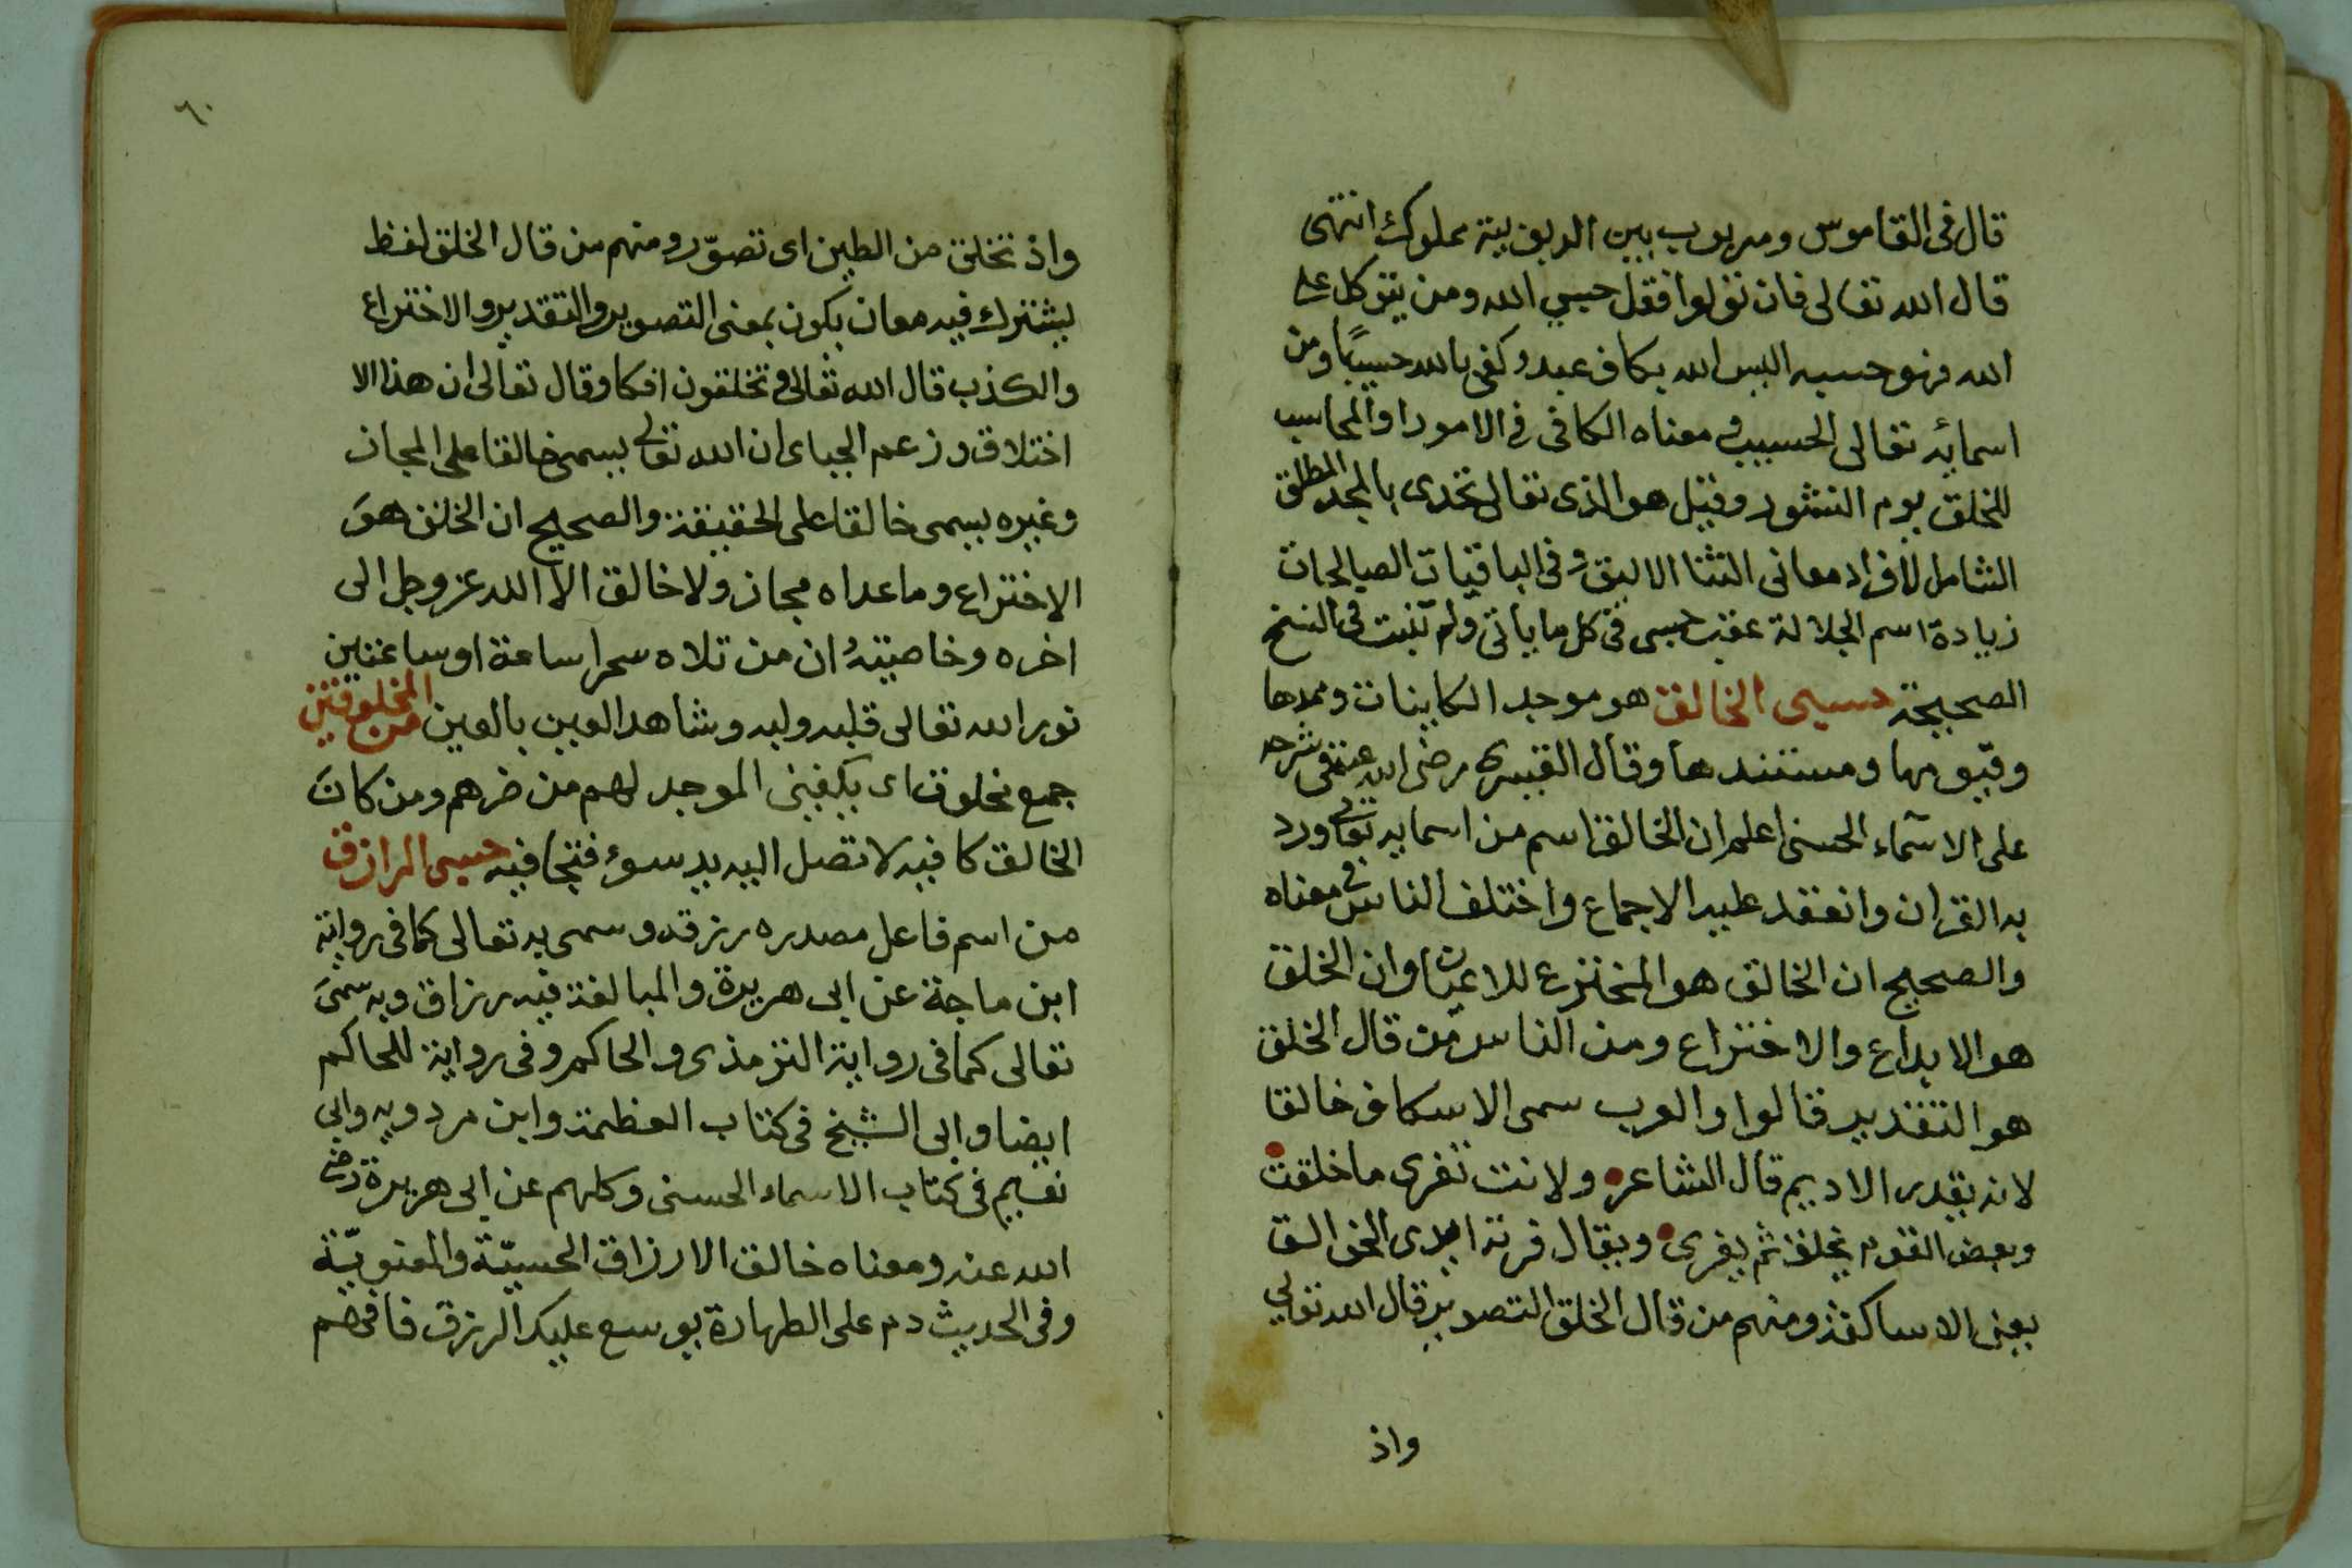 قال فى القاموس ومربوب بين الربوبية مملوك انتهى
قال الله تعالى فان تولوا فقل حسبي الله ومن يتوكل على
الله فهو حسبه اليس الله بكاف عبده وكفى بالله حسيبًا ومن
اسمائه تعالى الحسيب ومعناه الكافى فى الامور او المحاسب
للخلق يوم النشور وقيل هو الذى تعالى بالمجد المطلق
الشامل لافراد معانى الثنا الاليق وفى الباقيات الصالحات
زيادة اسم الجلالة عقب حسبى فى كل ما ياتى ولم تثبت فى النسخ
الصحيحة حسبى الخالق هو موجد الكاينات وممدها
وقيومها ومستندها وقال رضى الله عنه فى شرحه
على الاسماء الحسنى اعلم ان الخالق اسم من اسمايه تعالى ورد
به القران وانعقد عليه الاجماع واختلف الناس فى معناه
والصحيح ان الخالق هو المخترع للاعيان وان الخلق
هو الابداع والاختراع ومن الناس من قال الخلق
هو التقدير قالوا والعرب سمى الاسكاف خالقا
لانه يقدر الاديم قال الشاعر ولانت تفرى ما خلقت
وبعض القوم يخلق ثم يفرى ويقال فرته ايدى الخوالق
يعنى الاساكفة ومنهم من قال الخلق التصوير قال الله تعالى
واذ
٦٠
واذ تخلق من الطين اى تصوّر ومنهم من قال الخلق لفظ
يشترك فيه معان يكون بمعنى التصوير والتقدير والاختراع
والكذب قال الله تعالى وتخلقون افكا وقال تعالى ان هذا الا
اختلاق وزعم الجباى ان الله تعالى يسمى خالقا على المجاز
وغيره يسمى خالقا على الحقيقة والصحيح ان الخلق هو
الاختراع وما عداه مجاز ولا خالق الا الله عز وجل الى
اخره وخاصيته ان من تلاه سحرا ساعة او ساعتين
نور الله تعالى قلبه ولبه وشاهد العين بالعين من المخلوقين
جمع مخلوق اى يكفينى الموجد لهم من ضرهم ومن كان
الخالق كافيه لا تصل اليه يد سوء حسبى الرازق
من اسم فاعل مصدره رزقه وسمى به تعالى كما فى رواية
ابن ماجة عن ابى هريرة والمبالغة فيه رزاق وبه سمى
تعالى كما فى رواية الترمذى والحاكم وفى رواية للحاكم
ايضا وابى الشيخ فى كتاب العظمة وابن مردويه وابى
نعيم فى كتاب الاسماء الحسنى وكلهم عن ابى هريرة رضى
الله عنه ومعناه خالق الارزاق الحسيّة والمعنويّة
وفى الحديث دم على الطهارة يوسع عليك الرزق فافهم